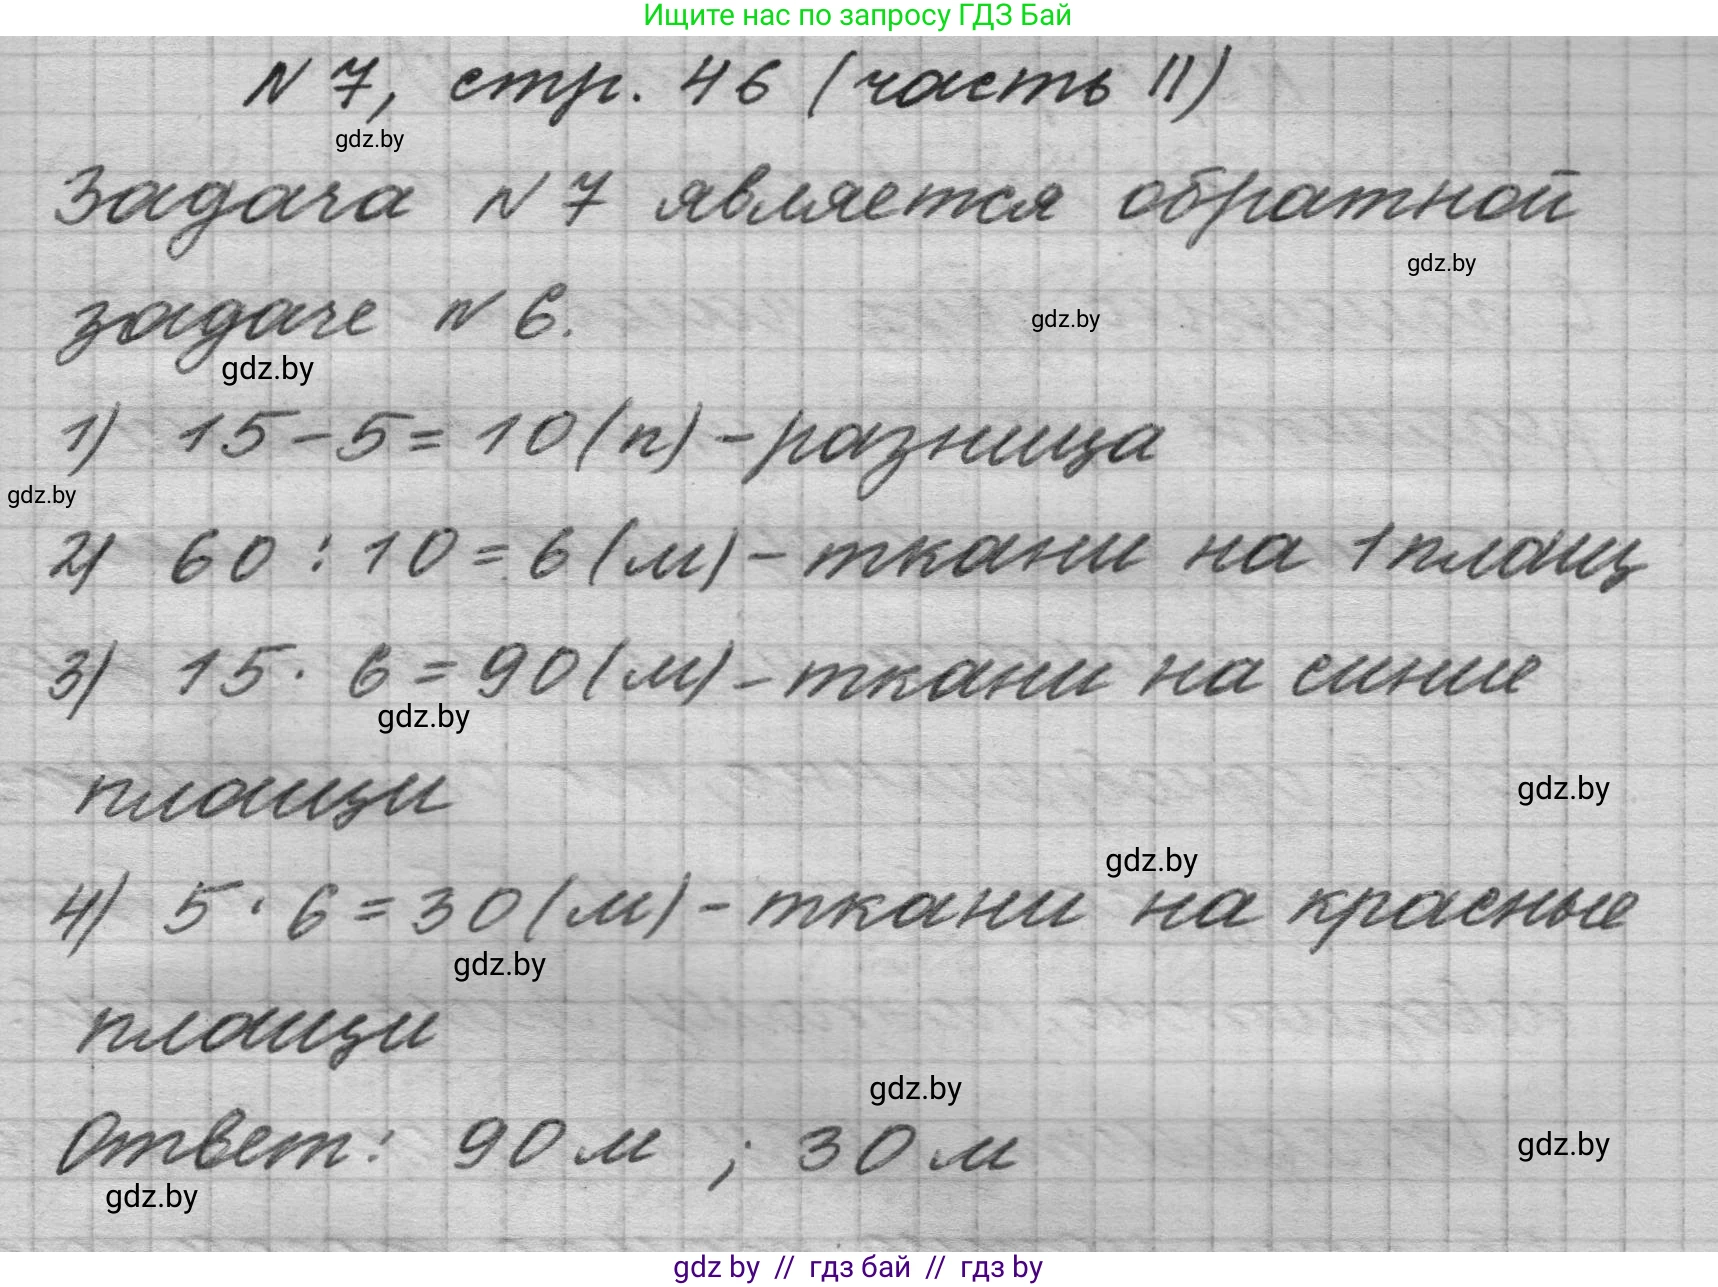 Ищите нас по запросу ГДЗ Бай
N 7, стр. 46 (часть II)
gdz.by
Задача N 7 является обратной
gdz.by
задаче N 6.
gdz.by
gdz.by
1) 15 - 5 = 10 (п) - разница
gdz.by
2) 60 : 10 = 6 (м) - ткани на 1 плащ
3) 15 · 6 = 90 (м) - ткани на синие
gdz.by
плащи
gdz.by
gdz.by
4) 5 · 6 = 30 (м) - ткани на красные
gdz.by
плащи
gdz.by
Ответ: 90 м ; 30 м
gdz.by
gdz.by
gdz by // гдз бай // гдз by